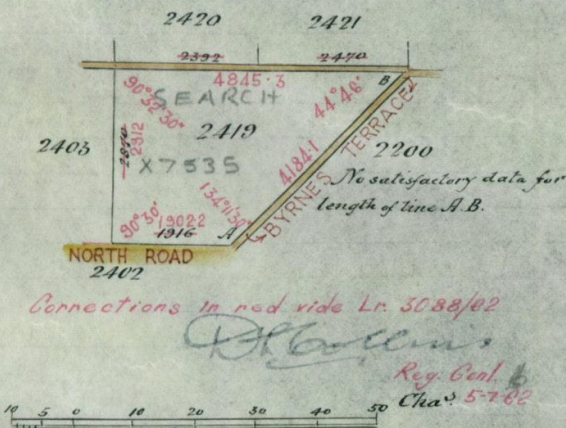 2420 2421
2392 2470
4845·3
B
90°32'30" SEARCH 44°46'
2403 2419 2200
2312
X7535 4184·1
BYRNES TERRACE
No satisfactory data for
length of line A.B.
90°30' 1902·2 134°11'30"
1916 A
NORTH ROAD
2402
Corrections in red vide Lr. 3088/82
Reg. Genl.
Chas. 5-7-82
10 5 0 10 20 30 40 50